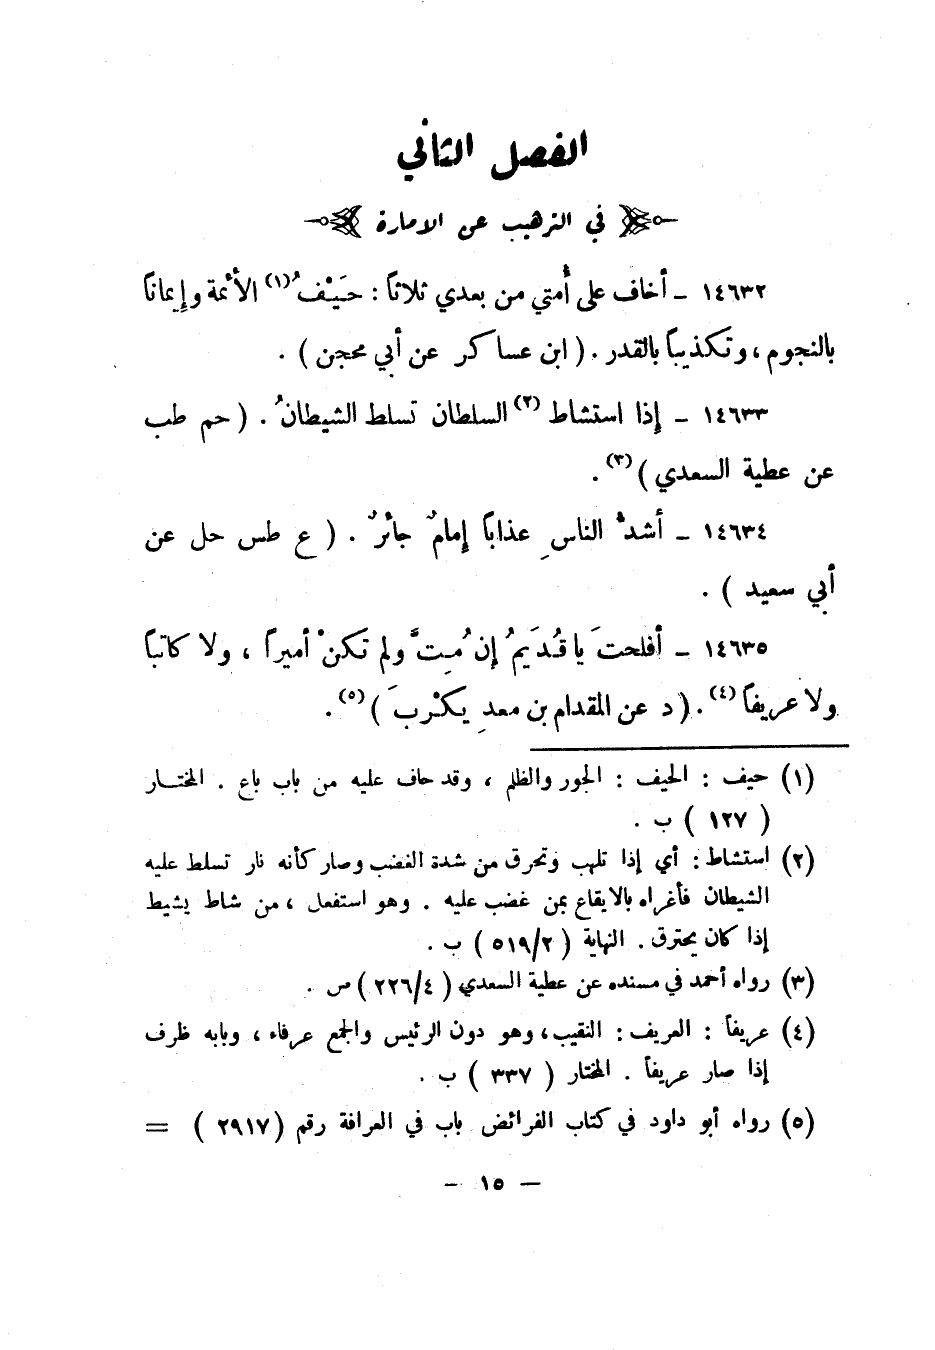 الفصل الثاني
في الترهيب عن الامارة
١٤٦٣٢ ـ أخاف على أُمتي من بعدي ثلاثاً : حَيْفُ(١) الأئمة وإيماناً
بالنجوم ، وتكذيباً بالقدر . ( ابن عساكر عن أبي محجن ) .
١٤٦٣٣ ـ إذا استشاط (٢) السلطان تسلط الشيطانُ . ( حم طب
عن عطية السعدي ) (٣) .
١٤٦٣٤ ـ أشدُّ الناسِ عذاباً إمامٌ جائرٌ . ( ع طس حل عن
أبي سعيد ) .
١٤٦٣٥ ـ أفلحتَ يا قُدَيمُ إن مُِتَّ ولم تكنْ أميراً ، ولا كاتباً
ولا عريفاً (٤) . ( د عن المقدام بن معدِ يكرْبَ ) (٥) .
(١) حيف : الحيف : الجور والظلم ، وقد حاف عليه من باب باع . المختار
( ١٢٧ ) ب .
(٢) استشاط : أي إذا تلهب وتحرق من شدة الغضب وصار كأنه نار تسلط عليه
الشيطان فأغراه بالايقاع بمن غضب عليه . وهو استفعل ، من شاط يشيط
إذا كان يحترق . النهاية ( ٥١٩/٢ ) ب .
(٣) رواه أحمد في مسنده عن عطية السعدي ( ٢٢٦/٤ ) ص .
(٤) عريفاً : العريف : النقيب ، وهو دون الرئيس والجمع عرفاء ، وبابه ظرف
إذا صار عريفاً . المختار ( ٣٣٧ ) ب .
(٥) رواه أبو داود في كتاب الفرائض باب في العرافة رقم ( ٢٩١٧ ) =
— ١٥ —